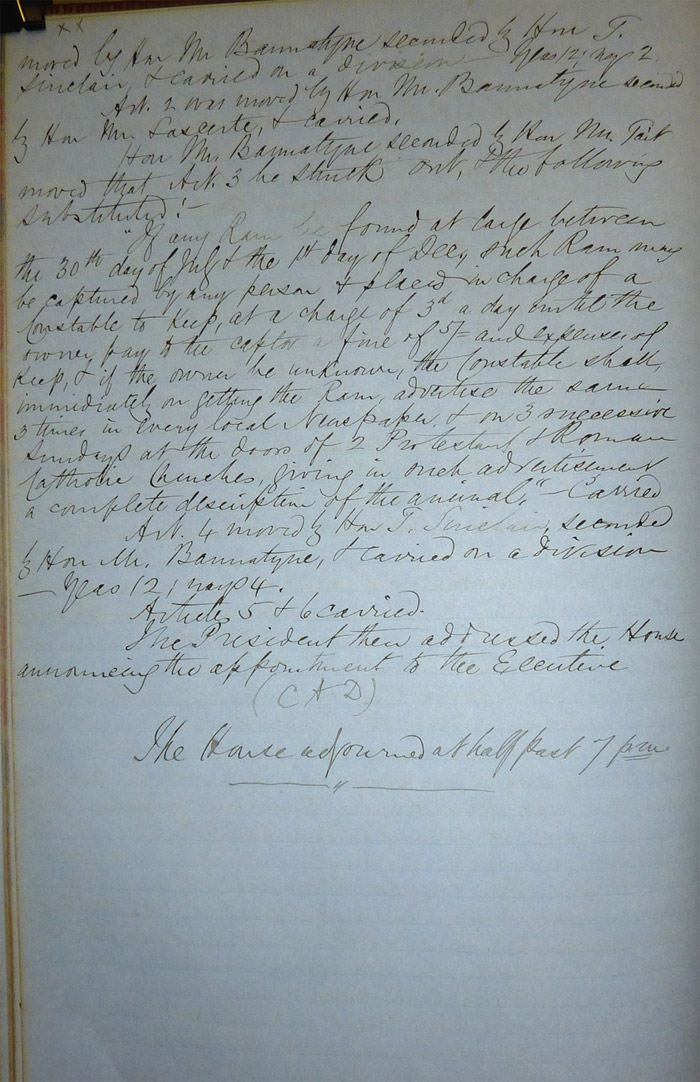 x x
moved by Hon Mr Bannatyne seconded by Hon T.
Sinclair, & carried on a division — Yeas 12; nays 2.
Art. 2 was moved by Hon Mr. Bannatyne seconded
by Hon Mr. Lascerte, & carried.
Hon Mr. Bannatyne seconded by Hon Mr. Tait
moved that Art. 3 be struck out, & the following
substituted:—
"If any Ram be found at large between
the 30th day of July & the 1st day of Dec, such Ram may
be captured by any person & placed in charge of a
Constable to keep, at a charge of 3d a day until the
owner pay to the captor a fine of 5/- and expenses of
keep, & if the owner be unknown, the Constable shall,
immediately on getting the Ram, advertise the same
3 times in every local Newspaper, & on 3 successive
Sundays at the doors of 2 Protestant & Roman
Catholic Churches, giving in such advertisement
a complete description of the animal." — Carried
Art. 4 moved by Hon T. Sinclair, seconded
by Hon Mr. Bannatyne, & carried on a division
— Yeas 12; nays 4.
Articles 5 & 6 carried.
The President then addressed the House
announcing the appointment to the Executive
(C A D)
The House adjourned at half past 7 pm